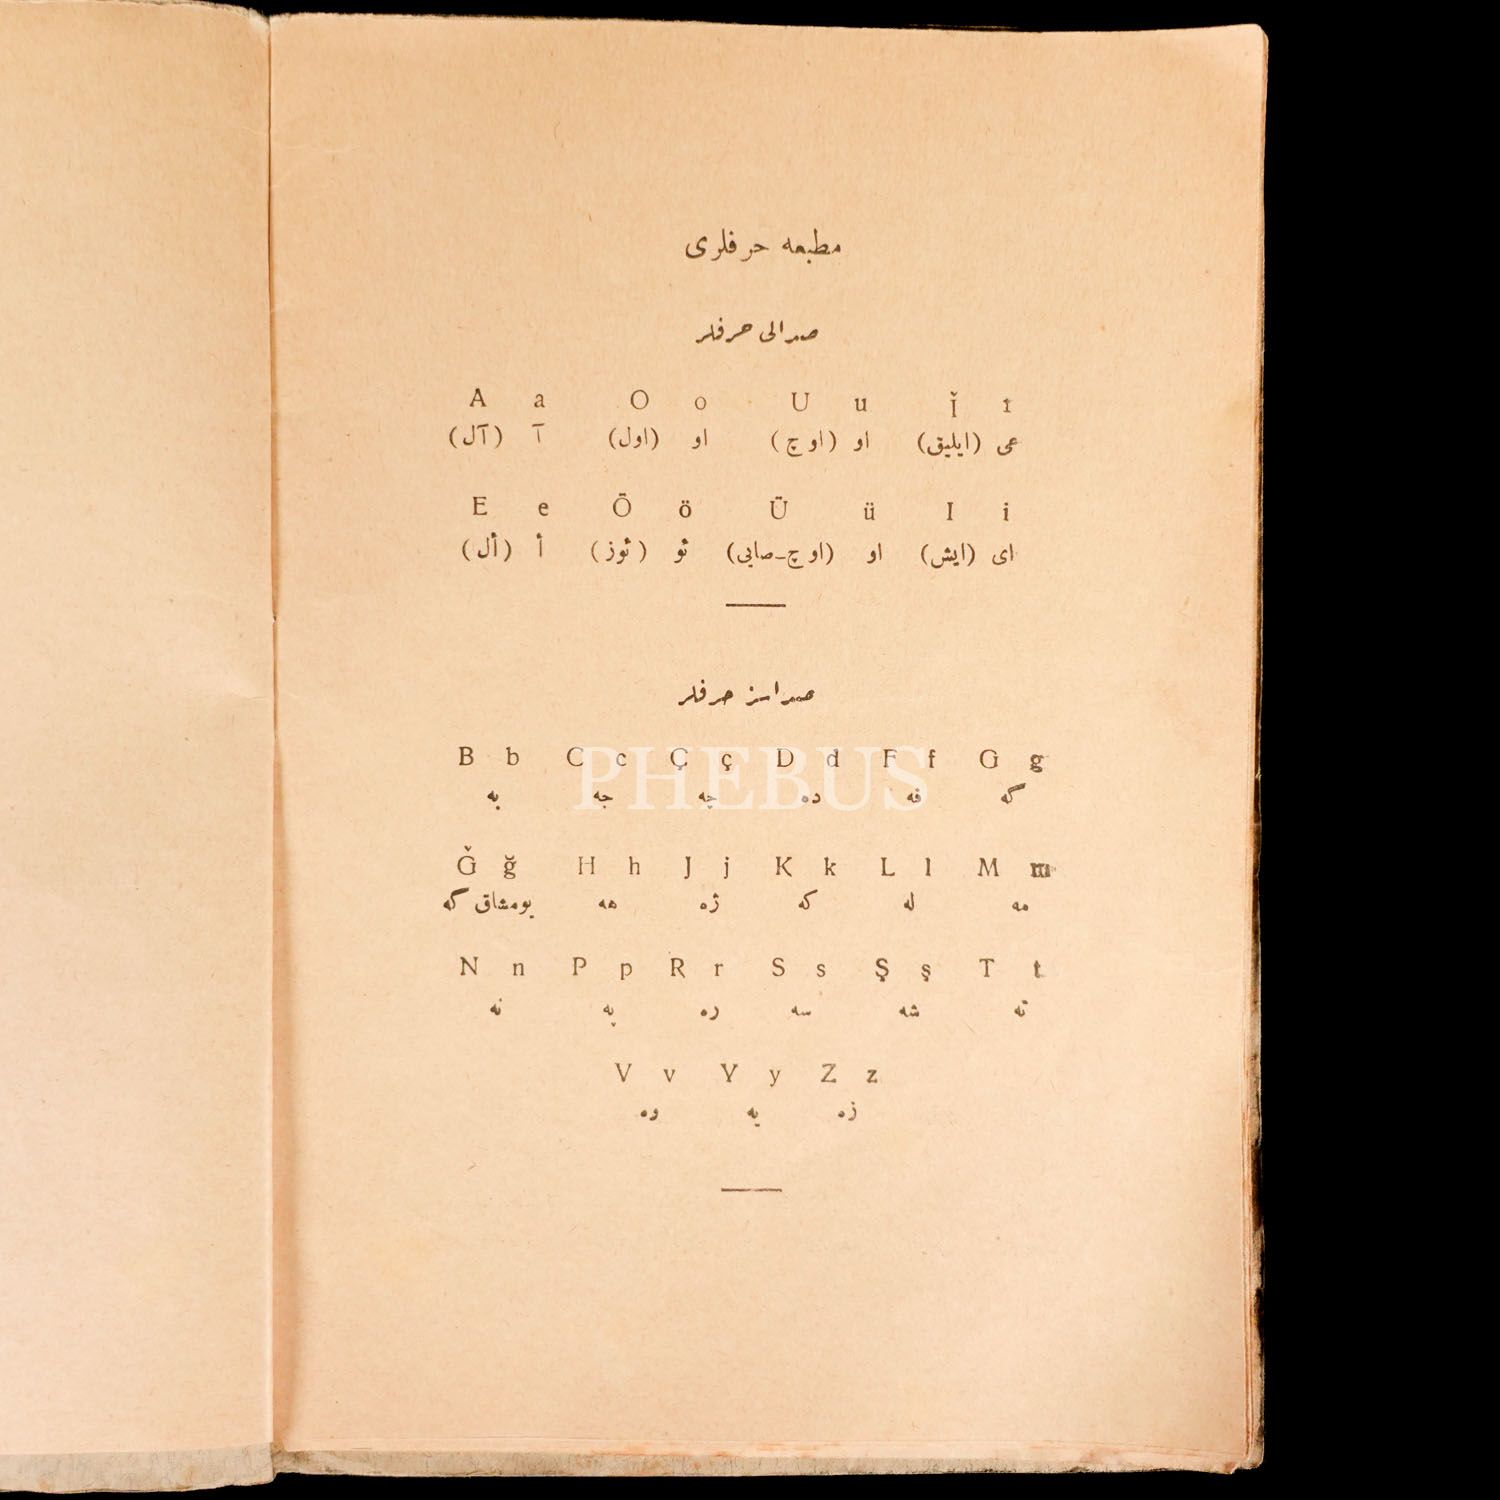 مطبعه حرفلری
صدالی حرفلر
A a O o U u Ǐ ı
آ (آل) او (اول) او (اوچ) عی (ایلیق)
E e Ö ö Ü ü I i
أ (أل) ئو (ئوز) او (اوچ-صایی) ای (ایش)
صداسز حرفلر
B b C c Ç ç D d F f G g
به جه چه ده فه گه
Ǧ ğ H h J j K k L l M m
یومشاق گه هه ژه که له مه
N n P p R r S s Ş ş T t
نه په ره سه شه ته
V v Y y Z z
وه یه زه
PHEBUS